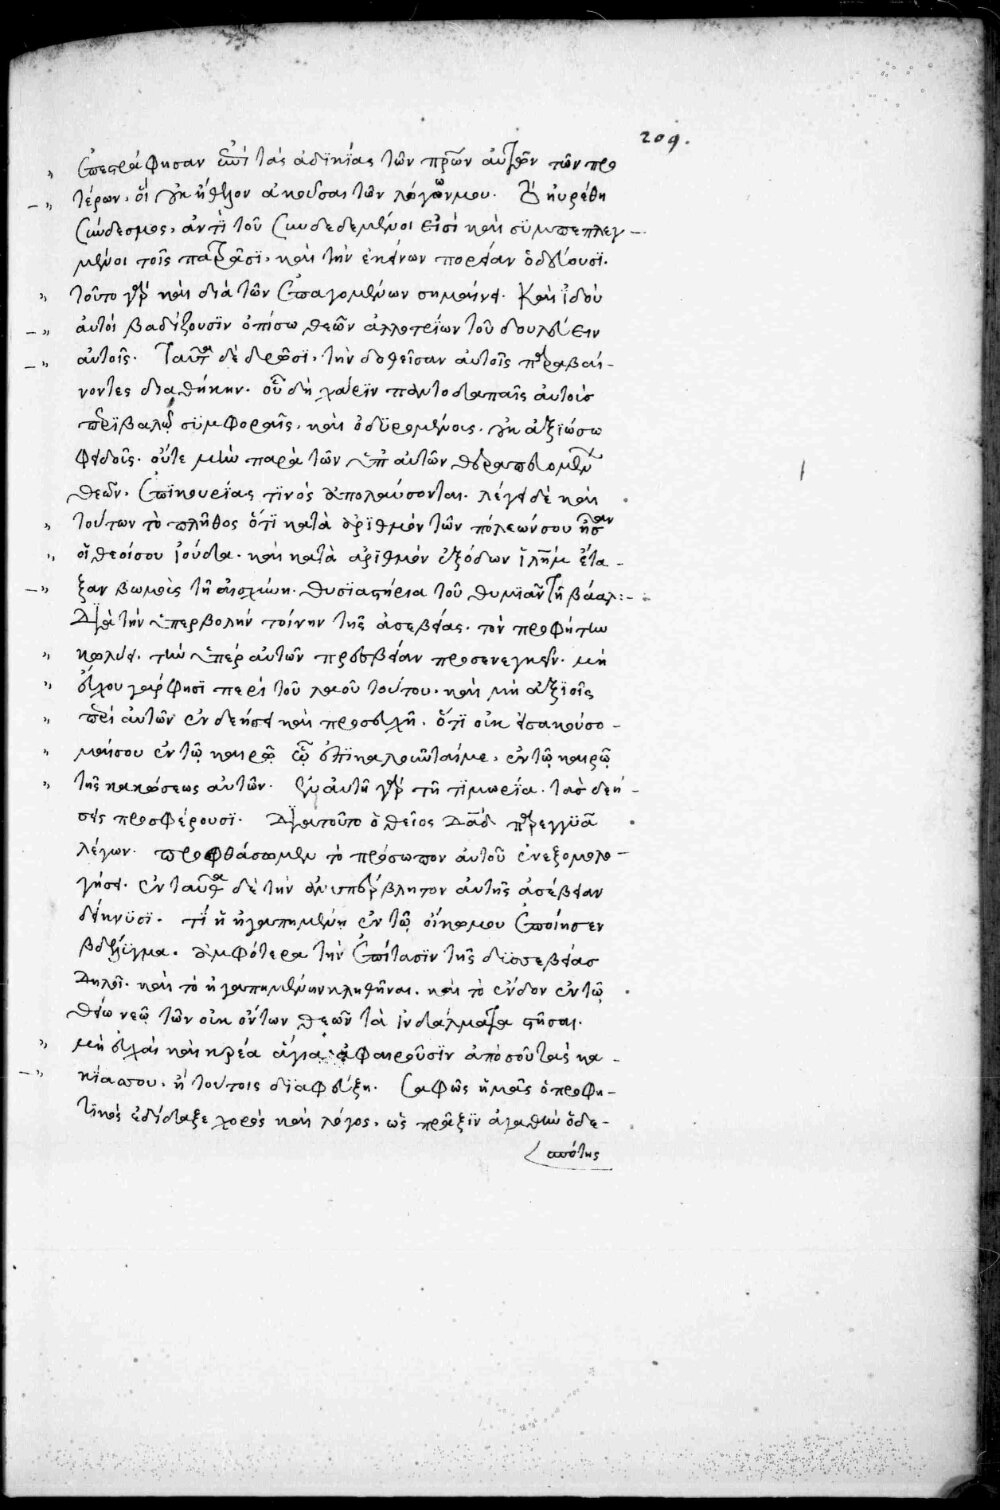 209.
ἐπεστράφησαν ἐπὶ τὰς ἀδικίας τῶν πρ̅ων αὐτῶν τῶν προ
τέρων, οἳ οὐκ ἤθελον ἀκοῦσαι τῶν λόγων μου. τὸ ηὑρέθη
σύνδεσμος, ἀντὶ τοῦ συνδεδεμένοι εἰσὶ καὶ συμπεπλεγ-
μένοι τοῖς πατράσι, καὶ τὴν ἐκείνων πορείαν ὁδεύουσι.
τοῦτο γὰρ καὶ διὰ τῶν ἐπαγομένων σημαίνει. Καὶ ἰδοὺ
αὐτοὶ βαδίζουσιν ὀπίσω θεῶν ἀλλοτρίων τοῦ δουλεύειν
αὐτοῖς. Ταῦτα δὲ δρῶσι, τὴν δοθεῖσαν αὐτοῖς παραβαί-
νοντες διαθήκην. οὗ δὴ χάριν παντοδαπαῖς αὐτοὺς
περιβαλῶ συμφοραῖς, καὶ ὀδυρομένοις, οὐκ ἀξιώσω
φειδοῖς. οὔτε μὴν παρὰ τῶν ὑπ' αὐτῶν θεραπευομένων
θεῶν, ἐπικουρίας τινὸς ἀπολαύσονται. λέγει δὲ καὶ
τούτων τὸ πλῆθος ὅτι κατὰ ἀριθμὸν τῶν πόλεών σου ἦσαν
οἱ θεοί σου ἰούδα. καὶ κατὰ ἀριθμὸν ἐξόδων ἱλημ̅ ἔτα-
ξαν βωμοὺς τῇ αἰσχύνῃ. θυσιαστήρια τοῦ θυμιᾶν τῇ βάαλ:-
Διὰ τὴν ὑπερβολὴν τοίνυν τῆς ἀσεβείας, τὸν προφήτην
κωλύει, τὴν ὑπὲρ αὐτῶν πρεσβείαν προσενεγκεῖν. μὴ
εὔχου γάρ φησι περὶ τοῦ λαοῦ τούτου, καὶ μὴ ἀξιοῖς
περὶ αὐτῶν ἐν δεήσει καὶ προσευχῇ. ὅτι οὐκ εἰσακούσο-
μαί σου ἐν τῷ καιρῷ ᾧ ἐπικαλοῦνταί με, ἐν τῷ καιρῷ
τῆς κακώσεως αὐτῶν. ἐν αὐτῇ γὰρ τῇ τιμωρίᾳ, τὰς δεή-
σεις προσφέρουσι. Διὰ τοῦτο ὁ θεῖος Δαδ̅ παρεγγυᾶ
λέγων. προφθάσωμεν τὸ πρόσωπον αὐτοῦ ἐν ἐξομολο-
γήσει. ἐνταῦθα δὲ τὴν ἀνυπέρβλητον αὐτῆς ἀσέβειαν
δείκνυσι. τί ἡ ἠγαπημένη ἐν τῷ οἴκῳ μου ἐποίησεν
βδέλυγμα. ἀμφότερα τὴν ἐπίτασιν τῆς δυσσεβείας
Δηλοῖ. καὶ τὸ ἠγαπημένην κληθῆναι, καὶ τὸ ἔνδον ἐν τῷ
θείῳ νεῷ τῶν οὐκ ὄντων θεῶν τὰ ἰνδάλματα στῆσαι.
μὴ εὐχαὶ καὶ κρέα ἅγια ἀφαιροῦσιν ἀπὸ σοῦ τὰς κα-
κίας σου, ἢ τούτοις διαφεύξῃ. Σαφῶς ἡμᾶς ὁ προφη-
τικὸς ἐδίδαξε χορὸς καὶ λόγος, ὡς πρᾶξιν ἀγαθὴν ὅδε-
ἀπὸ τῆς